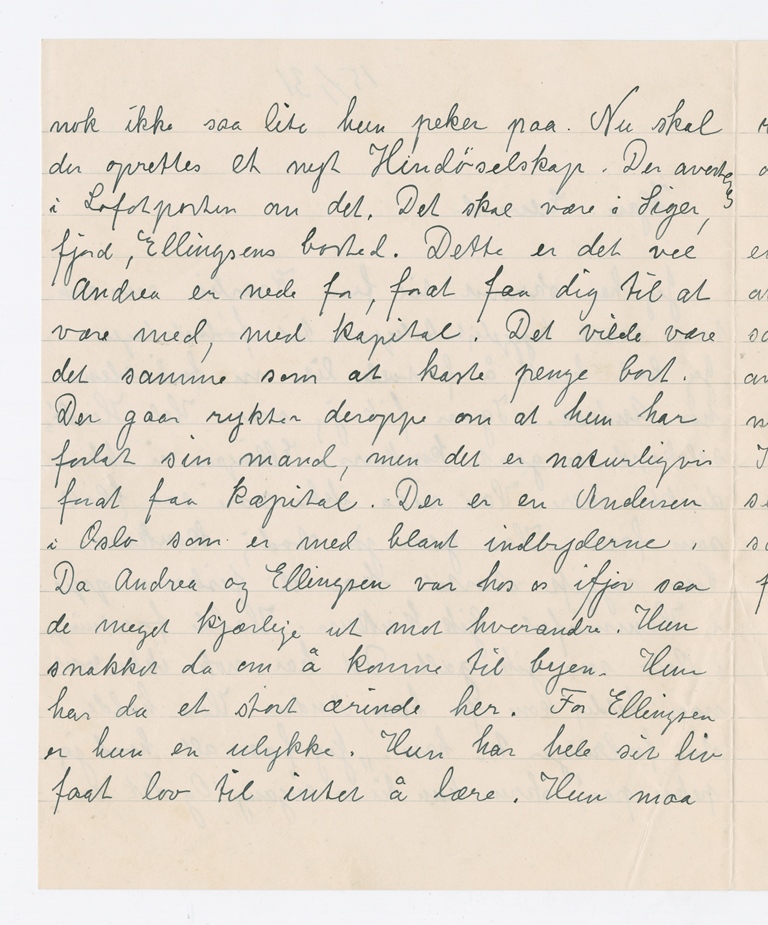 nok ikke saa lite hun peker paa. Nu skal
der oprettes et nytt Hindöselskap. Der averteres
i Lofotposten om det. Det skal være i Siger,
fjord, Ellingsens bosted. Dette er det vel
Andrea er nede for, forat faa dig til at
være med, med kapital. Det vilde være
det samme som at kaste penge bort.
Der gaar rykter deroppe om at hun har
forlat sin mand, men det er naturligvis
forat faa kapital. Der er en Andersen
i Oslo som er med blant indbyderne.
Da Andrea og Ellingsen var hos os ifjor saa
de meget kjærlige ut mot hverandre. Hun
snakket da om å komme til byen. Hun
har da et stort ærinde her. For Ellingsen
er hun en ulykke. Hun har hele sit liv
faat lov til intet å lære. Hun maa